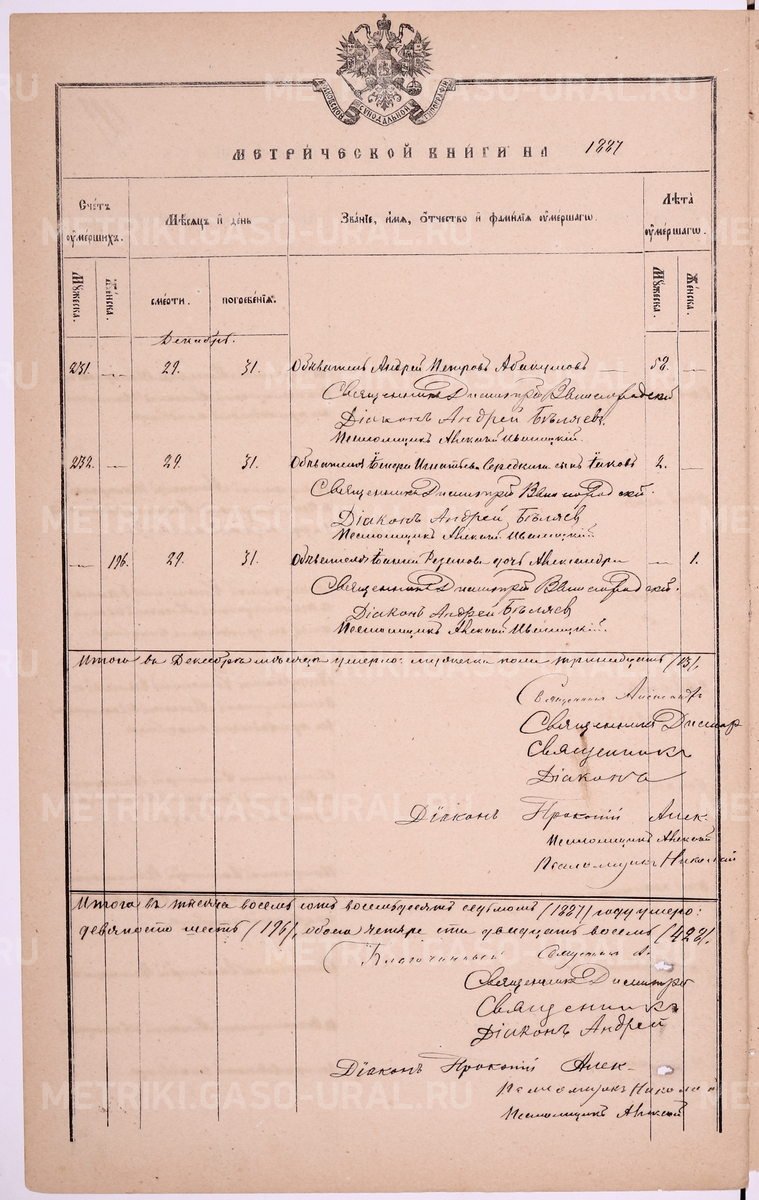 МОСКОВСКОЙ СѴНОДАЛЬНОЙ ТѴПОГРАФІИ
МЕТРИЧЕСКОЙ КНИГИ НА 1887
Счетъ ѹмершихъ.
Мѣсяцъ и день
Званіе, имя, отчество и фамилія ѹмершагѡ.
Лѣта ѹмершагѡ.
Мужеска.
Женска.
смерти.
погребенія.
Мужеска.
Женска.
Декабрь.
231. — 29. 31. Обыватель Андрей Петровъ Абакумовъ — 52. —
Священникъ Димитрій Вышегородскій
Діаконъ Андрей Бѣляевъ.
Псаломщикъ Алексій Ивановскій.
232. — 29. 31. Обывателя Игнатьева Середкина сынъ Іаковъ 2. —
Священникъ Димитрій
Діаконъ Андрей Бѣляев
Псаломщикъ Алексій
— 196. 29. 31. Обывателя дочь Александра — 1.
Священникъ Димитрій
Діаконъ Андрей Бѣляев
Псаломщикъ Алексій
Итого въ Декабрѣ мѣсяцѣ умерло: мужеска пола тринадцать /13/,
Священникъ Александръ
Священникъ Димитр
Священникъ
Діаконъ
Діаконъ Прокопій Алек-
Псаломщикъ Алексій
Псаломщикъ Николай
Итого въ тысяча восемь сотъ восемьдесятъ седьмомъ /1887/ году умерло:
девяносто шесть /196/, обоего четыре ста двадцать восемь /428/.
Благочинный Священник А.
Священникъ Димитрій
Священникъ
Діаконъ Андрей
Діаконъ Прокопій Алек-
Псаломщикъ Николай
Псаломщикъ Алексій
METRIKI.GASO-URAL.RU